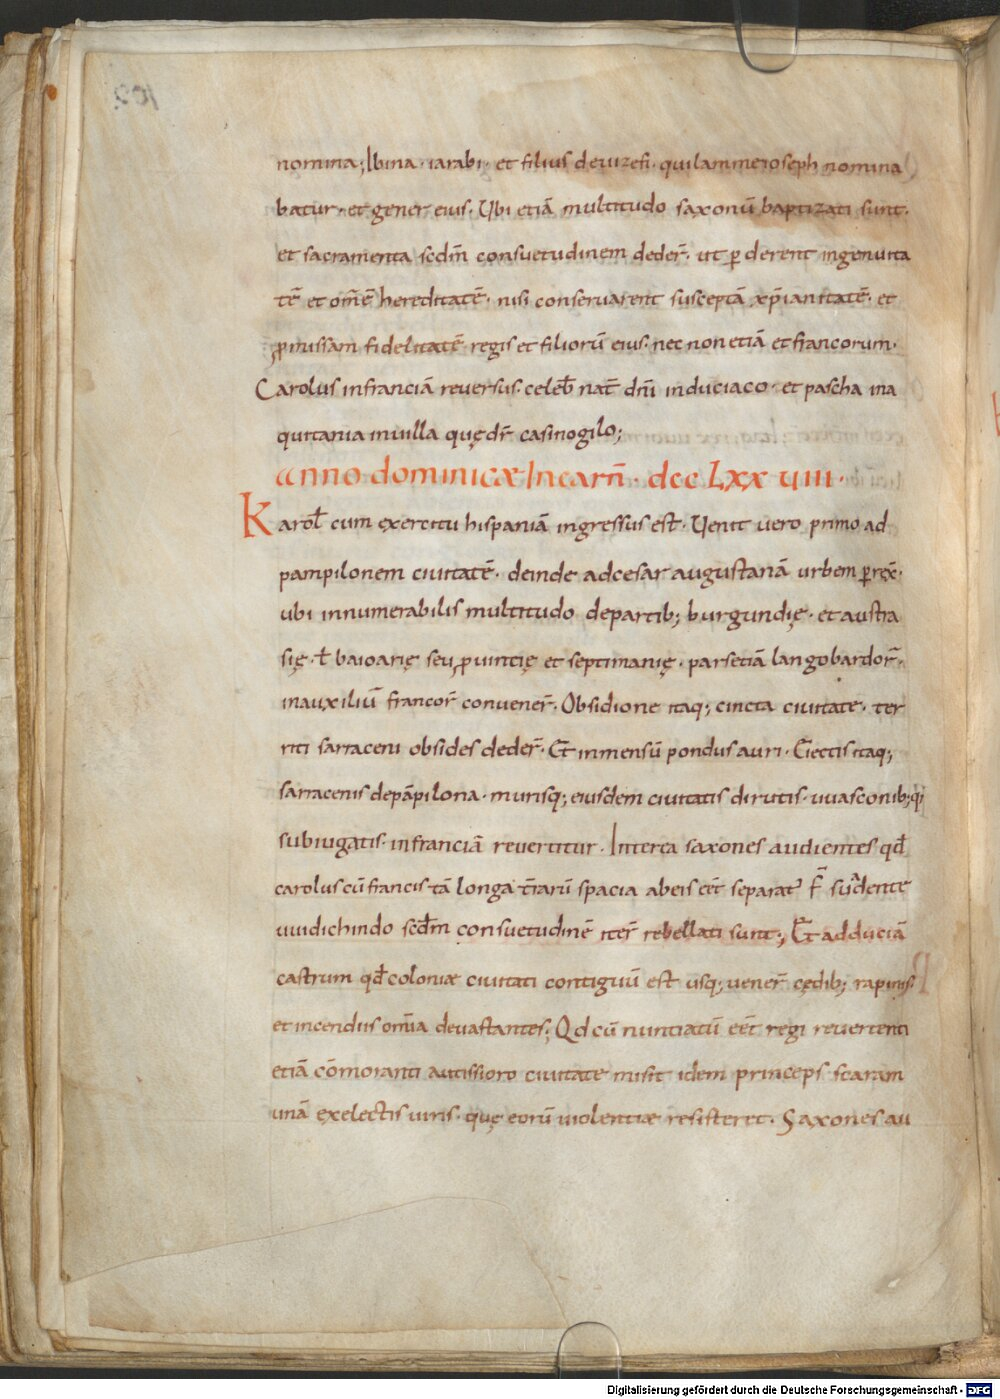 nomina; Ibina · iarabi · et filius deiuzefi · qui lamine ioseph nomina
batur · et gener eius · Ubi etiā multitudo saxonū baptizati sunt ·
et sacramenta scdm̄ consuetudinem deder̄ · ut ꝑderent ingenuita
tē et om̄ē hereditatē · nisi conservarent susceptā xp̄ianitatē · et
ꝓmissam fidelitatē regis et filiorū eius · nec non etiā et francorum ·
Carolus in franciā reversus · celeb̄ nat̄ dn̄i in duciaco · et pascha in a
quitania in villa quę dr̄ casinogilo;
anno dominicæ Incarn̄ · dcc Lxx uiii ·
Karol̄ cum exercitu hispaniā ingressus est · Uenit uero primo ad
pampilonem ciuitatē · deinde ad cesar augustanā urbem ꝑrex̄ ·
ubi innumerabilis multitudo de partib; burgundię · et austra
się · ł baioarię seu ꝓuintię et septimanię · pars etiā langobardor̄ ·
in auxiliū francor̄ convener̄ · Obsidione itaq; cincta ciuitate · ter
riti sarraceni obsides deder̄ · Et inmensū pondus auri · Eiectis itaq;
sarracenis de pāpilona · murisq; eiusdem ciuitatis dirutis · uuasconib; q;
subiugatis · in franciā revertitur · Interea saxones audientes qd̄
carolus cū francis tā longa t̄rarū spacia ab eis eēt separat᾽ suadente
uuidichindo scdm̄ consuetudinē iter̄ rebellati sunt; Et ad duciā
castrum qd̄ coloniæ ciuitati contiguū est usq; uener̄ cędib; rapinis ·
et incendiis om̄ia devastantes; Qd cū nuntiatū eēt regi revertenti
etiā cōmoranti autissioro ciuitate misit idem princeps scaram
unā ex electis uiris · quę eorū uiolentiæ resisteret · Saxones au
102
Digitalisierung gefördert durch die Deutsche Forschungsgemeinschaft - DFG